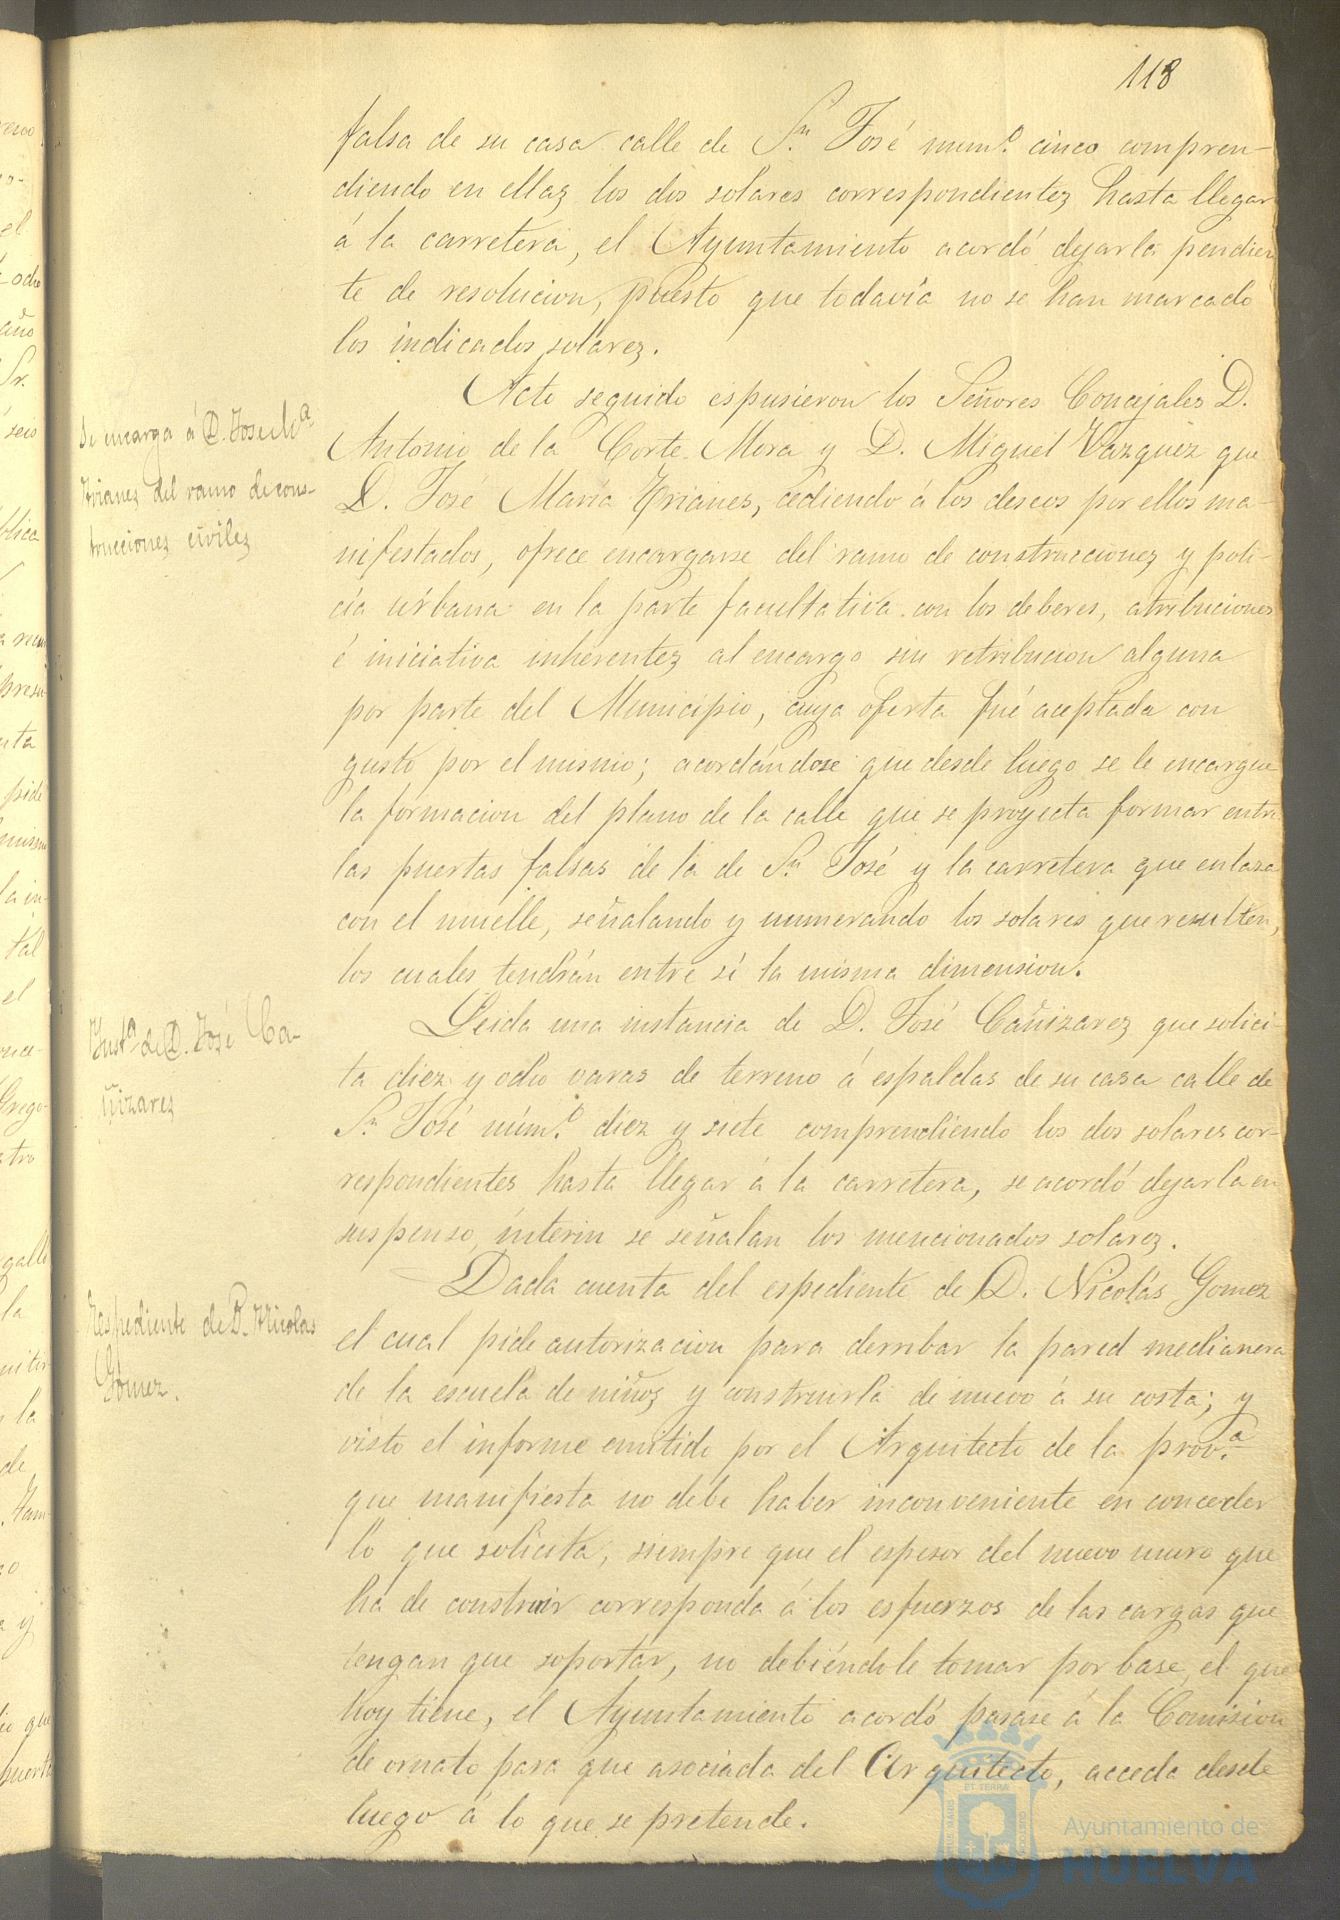 118
falsa de su casa calle de Sn. José numº. cinco compren-
diendo en ellaz los dos solares correspondientez hasta llegar
á la carretera, el Ayuntamiento acordó dejarla pendien
te de resolucion, puesto que todavía no se han marcado
los indicados solarez.
Acto seguido espusieron los Señores Concejales D.
Antonio de la Corte Mora y D. Miguel Vazquez que
D. José María Trianes, cediendo á los deseos por ellos ma-
nifestados, ofrece encargarse del ramo de construccionez y poli-
cía urbana en la parte facultativa con los deberes, atribuciones
é iniciativa inherentez al encargo sin retribucion alguna
por parte del Municipio, cuya oferta fué aceptada con
gusto por el mismo; acordándose que desde luego se le encargue
la formacion del plano de la calle que se proyecta formar entre
las puertas falsas de la de Sn. José y la carretera que enlaza
con el muelle, señalando y numerando los solares que resulten,
los cuales tendrán entre sí la misma dimension.
Leida una instancia de D. José Cañizarez que solici-
ta diez y ocho varas de terreno á espaldas de su casa calle de
Sn. José númº. diez y siete comprendiendo los dos solarez cor-
respondientes hasta llegar á la carretera, se acordó dejarla en
suspenso, interin se señalan los mencionados solarez.
Dada cuenta del espediente de D. Nicolás Gomez
el cual pide autorizacion para derribar la pared medianera
de la escuela de niñoz y construirla de nuevo á su costa; y
visto el informe emitido por el Arquitecto de la prov.ª
que manifiesta no debe haber inconveniente en conceder
lo que solicita, siempre que el espesor del nuevo muro que
ha de construir corresponda á los esfuerzos de las cargas que
tengan que soportar, no debiéndole tomar por base, el que
hoy tiene, el Ayuntamiento acordó pasase á la Comision
de ornato para que asociada del Arquitecto, acceda desde
luego á lo que se pretende.
Se encarga á D. José Mª
Trianez del ramo de cons-
truccionez civilez
Instª de D. José Ca-
ñizarez
Espediente de D. Nicolas
Gomez.
Ayuntamiento de
HUELVA